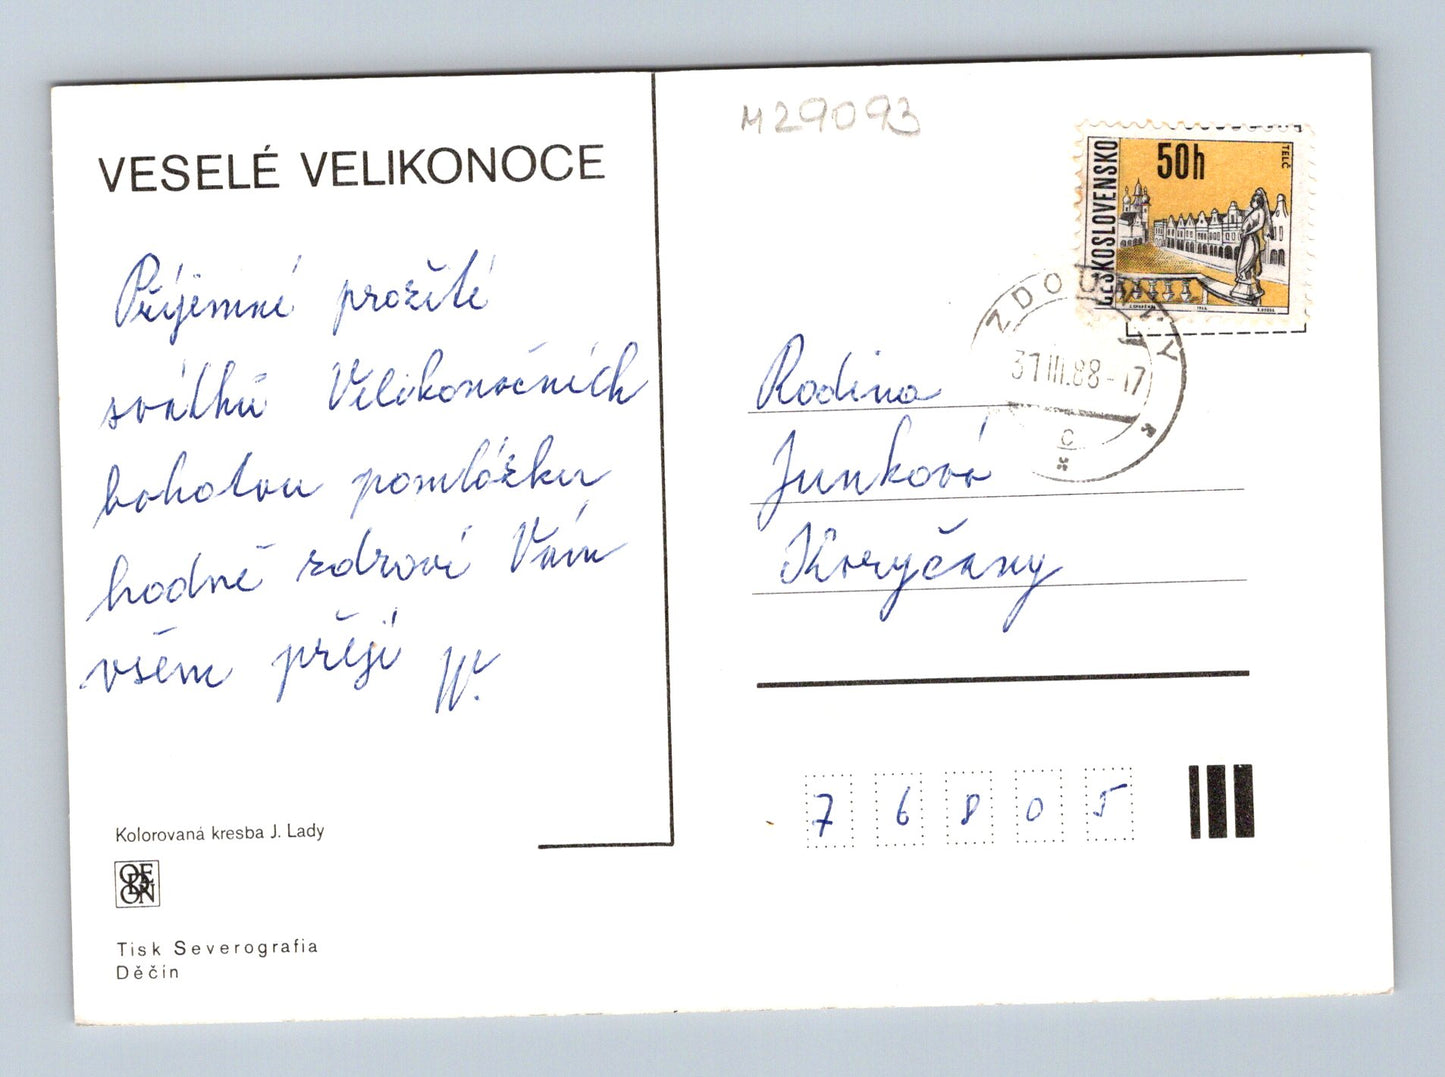 VESELÉ VELIKONOCE
Příjemné prožití
svátků Velikonočních
bohatou pomlázku
hodně zdraví Vám
všem přejí W.
Kolorovaná kresba J. Lady
ODEON
Tisk Severografia
Děčín
M29093
ČESKOSLOVENSKO
50h
TELČ
ZDOUNKY
31.III.88-17
C
Rodina
Junková
Koryčany
76805